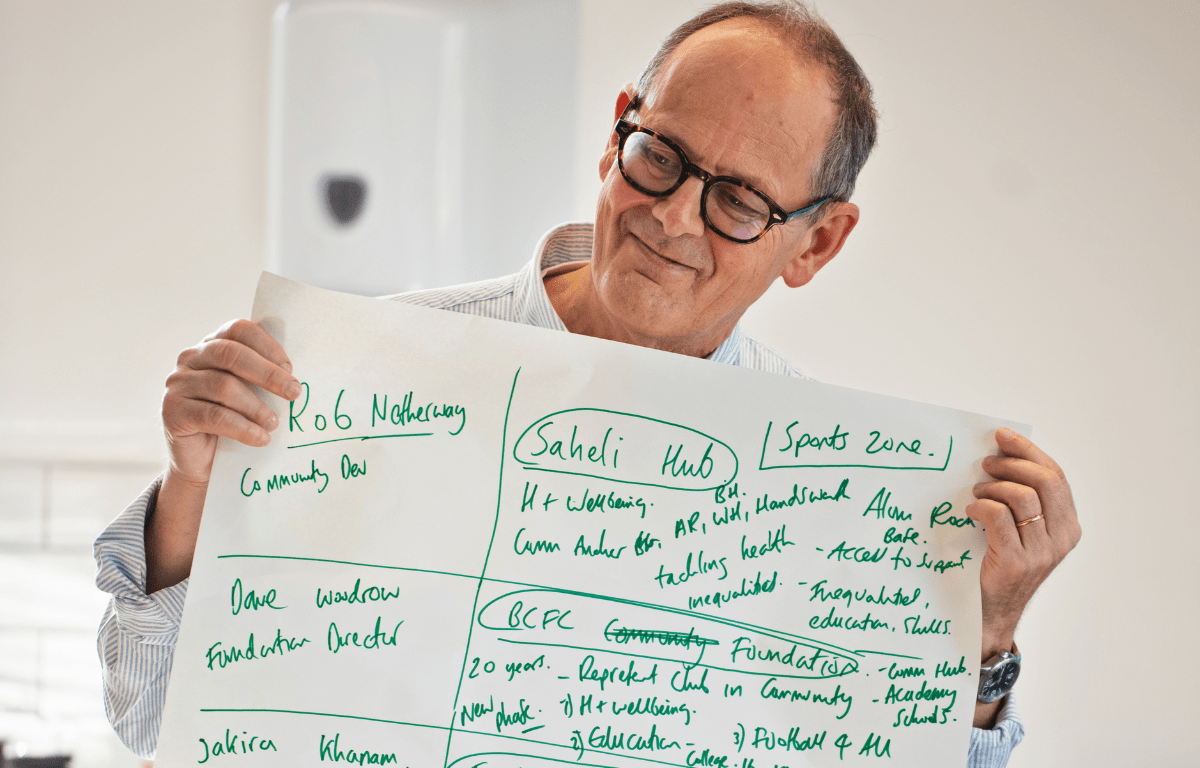 Rob Netherway
Community Dev
Saheli Hub
Sports Zone.
H + Wellbeing.
BH.
AR, WH, Handsworth
Comm Anchor
tackling health
inequalities.
Alum Rock
Base.
- Access to support
- Inequalities,
education, skills.
Dave Woodrow
Foundation Director
BCFC Community Foundation.
20 years.
- Represent Club in Community
New phase.
1) H + wellbeing.
2) Education -
College.
3) Football 4 All
- Comm Hub.
- Academy
Schools.
Jakira Khanam